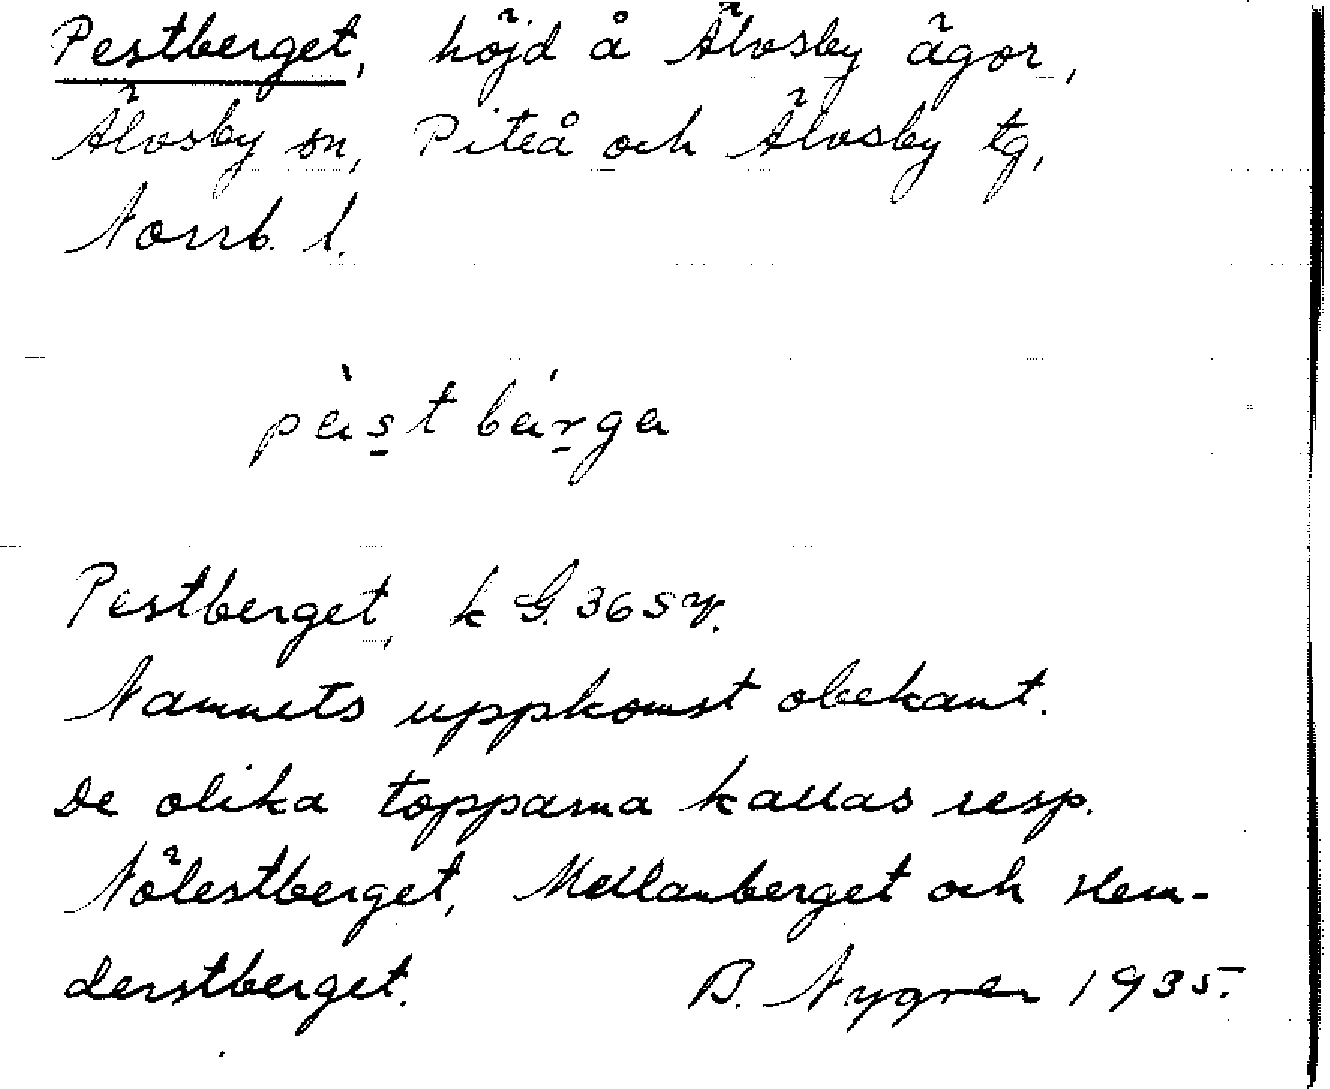 Pestberget, höjd å Älvsby ägor,
Älvsby sn, Piteå och Älvsby tg,
Norrb. l.
Pestberget, k G. 365 v.
Namnets uppkomst obekant.
De olika topparna kallas resp.
Nölestberget, Mellanberget och Hem-
derstberget. B. Nygren 1935.